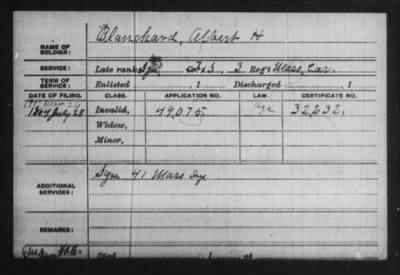 Blanchard, Albert H
NAME OF SOLDIER:
SERVICE: Late rank, Co. 3 Reg't Mass. Cav.
TERM OF SERVICE: Enlisted , 1 Discharged , 1
DATE OF FILING. CLASS. APPLICATION NO. LAW. CERTIFICATE NO.
July 28 Invalid, 49,075 32232.
Widow,
Minor,
ADDITIONAL SERVICES: 41 Mass
REMARKS: